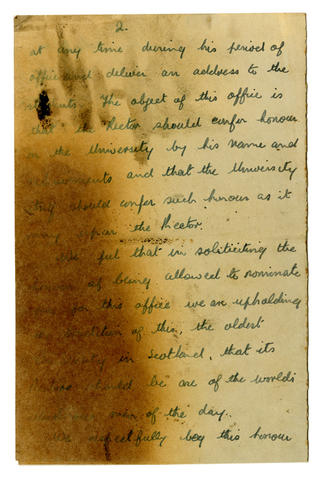 2.
at any time during his period of
office and deliver an address to the
students. The object of this office is
that the Rector should confer honour
on the University by his name and
achievements and that the University
should confer such honour as it
may upon the Rector.
We feel that in soliticiting the
of being allowed to nominate
you for this office we are upholding
the tradition of this, the oldest
University in Scotland, that its
Rectors should be one of the world's
men of the day.
We respectfully beg this honour